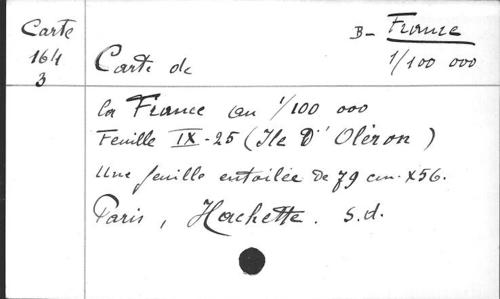 Carte
164
3
B- France
1/100 000
Carte de
la France au 1/100 000
Feuille IX-25 (Ile D'Oléron)
Une feuille entoilée de 79 cm. x56.
Paris, Hachette. s.d.